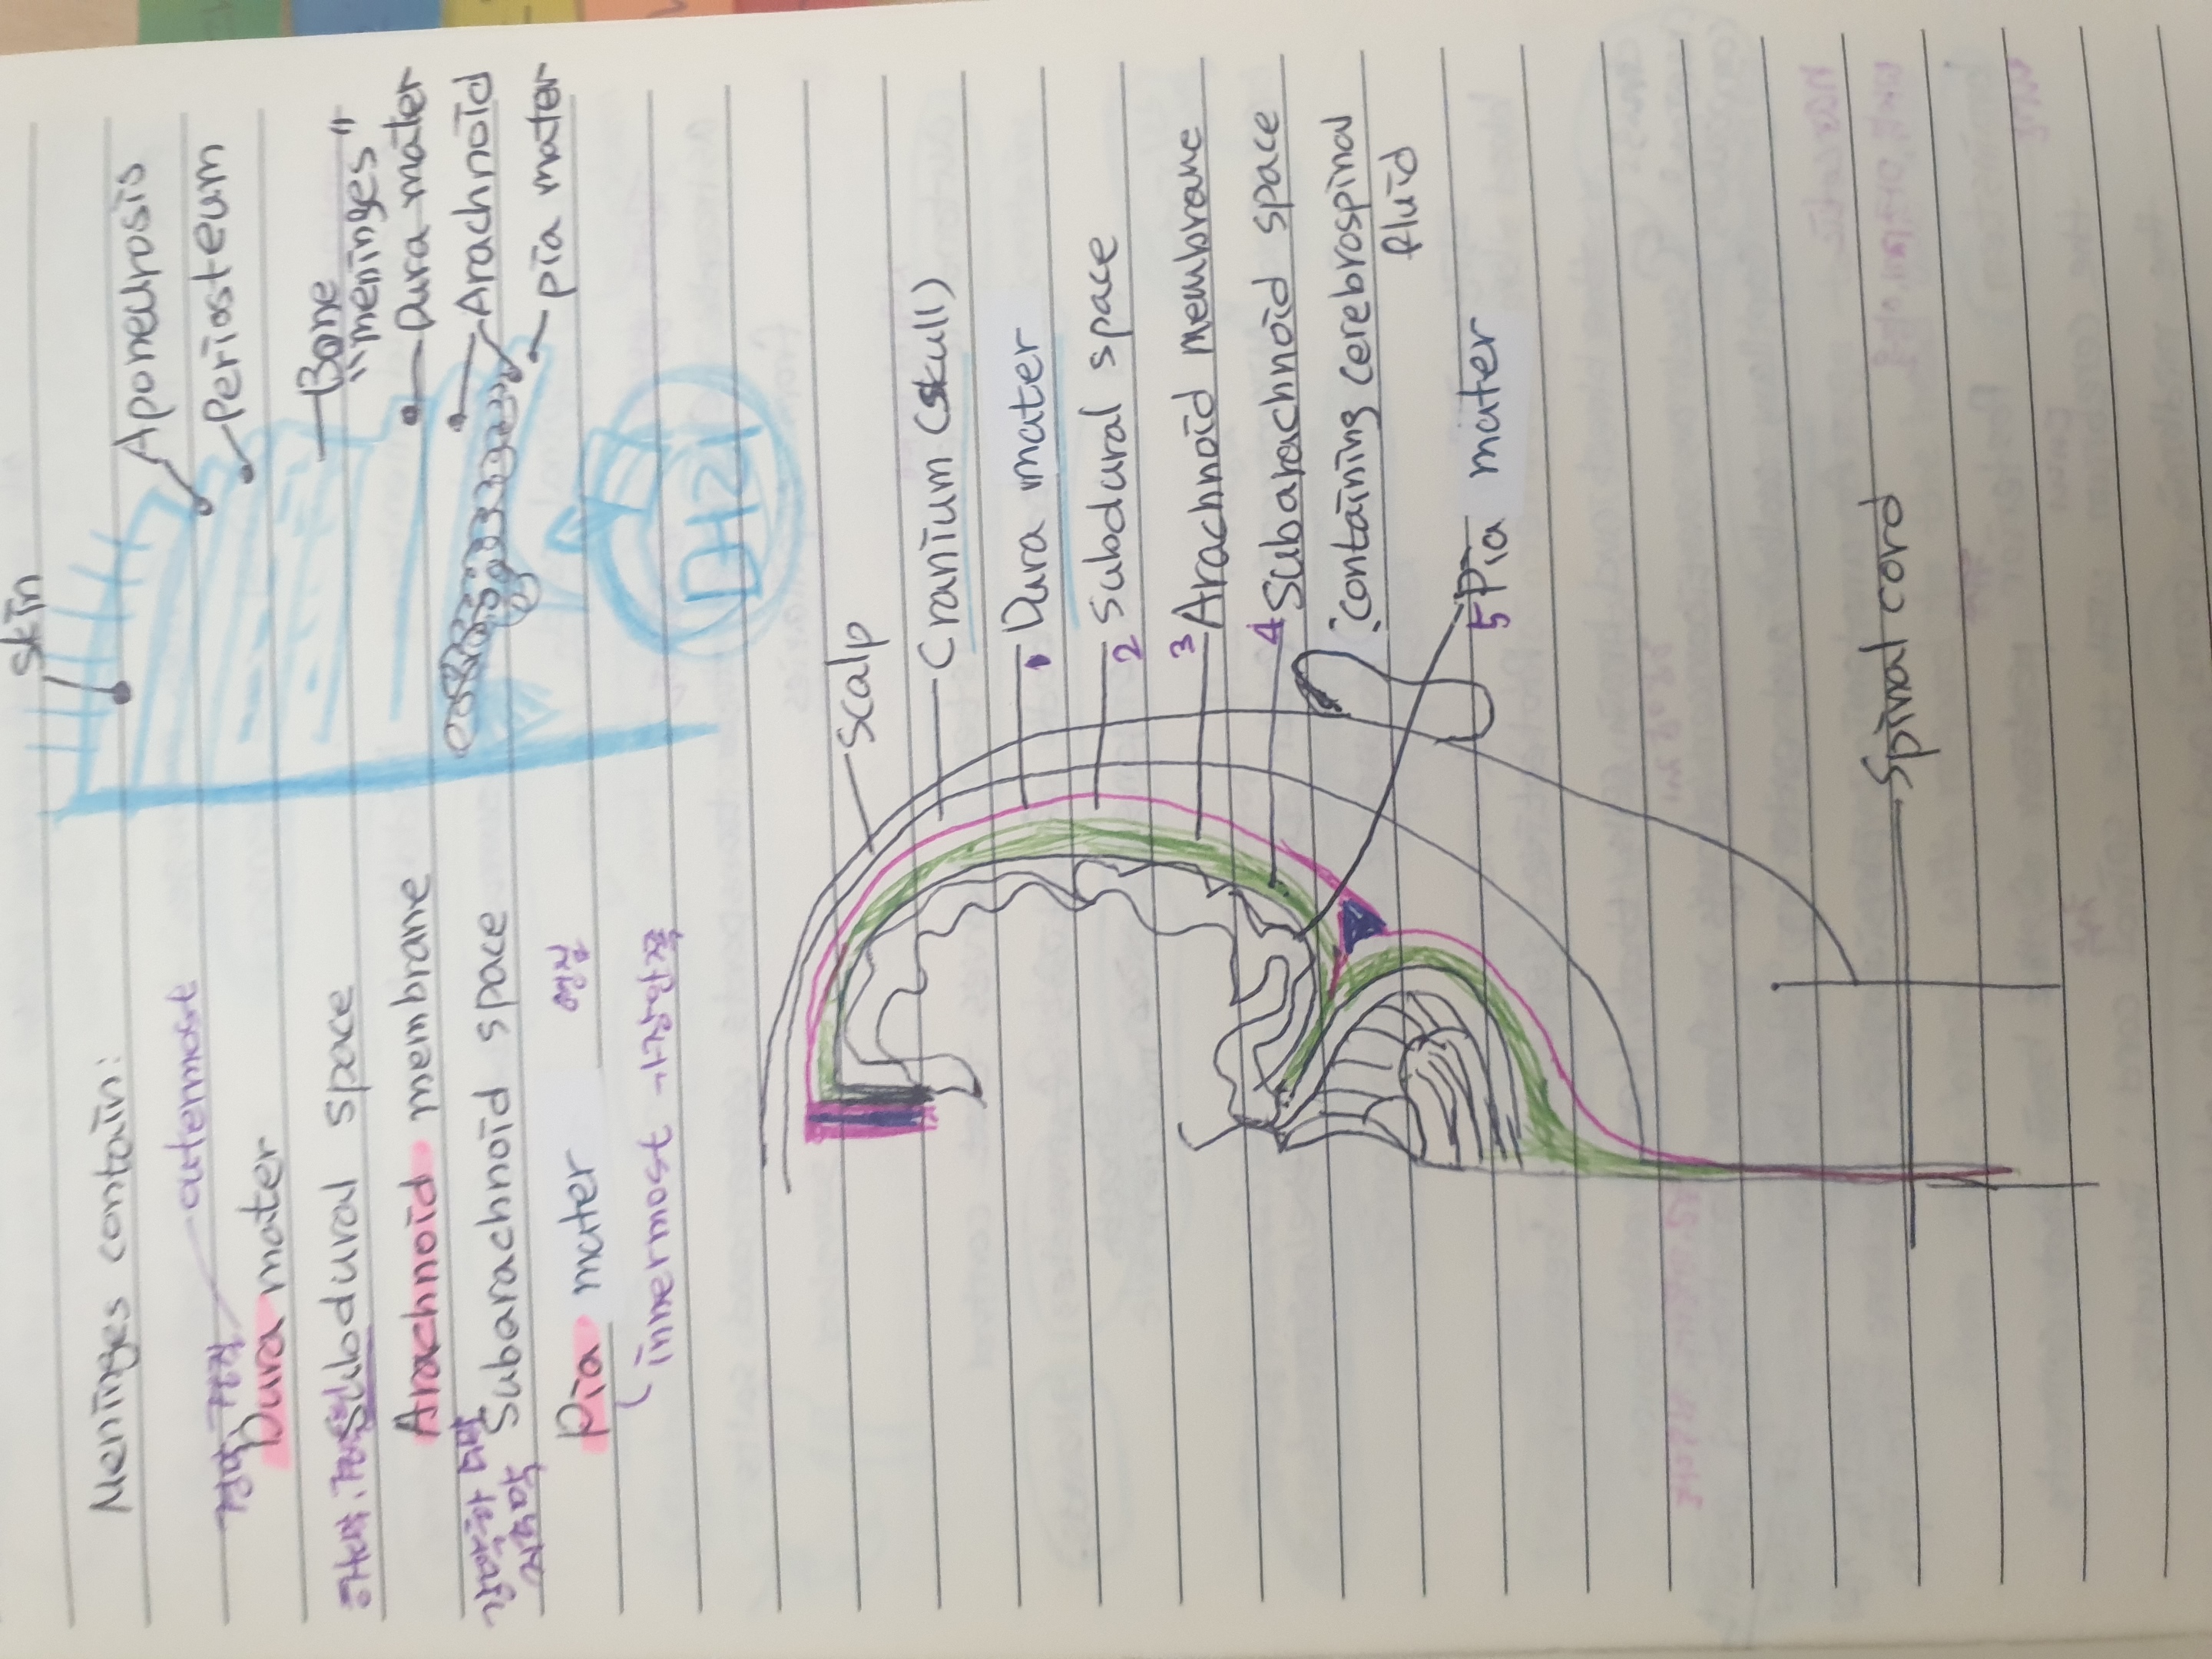 Meninges contain:
outermost
Dura mater
Subdural space
Arachnoid membrane
Subarachnoid space
Pia mater
innermost
skin
Aponeurosis
Periosteum
Bone
"meninges"
Dura mater
Arachnoid
pia mater
scalp
Cranium (skull)
1 Dura mater
2 subdural space
3 Arachnoid membrane
4 Subarachnoid space
containing cerebrospinal
fluid
5 Pia mater
Spinal cord